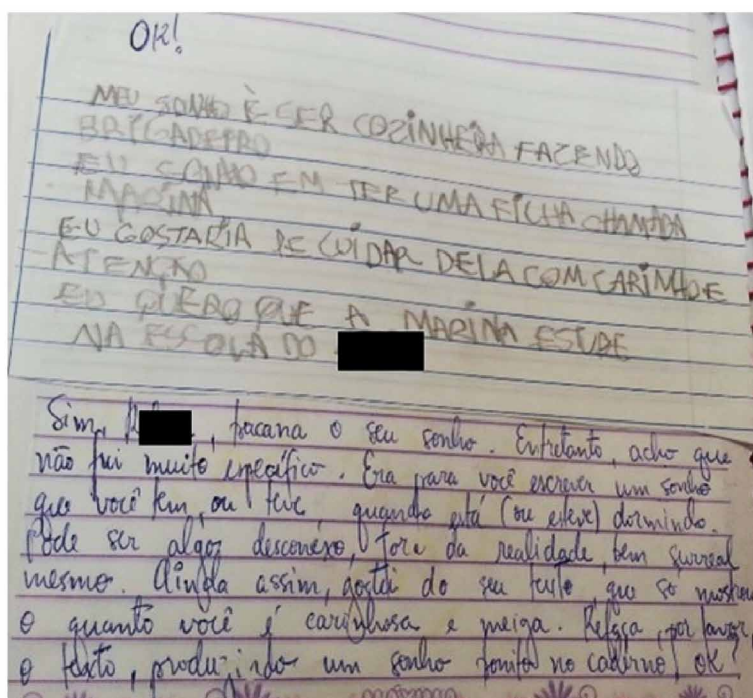 OK!
MEU SONHO È SER COZINHEIRA FAZENDO
BRIGADEIRO
EU SONHO EM TER UMA FILHA CHAMADA
MARINA
EU GOSTARIA DE CUIDAR DELA COM CARINHO E
ATENÇÃO
EU QUERO QUE A MARINA ESTUDE
NA ESCOLA DO
Sim, bacana o seu sonho. Entretanto, acho que
não fui muito específico. Era para você escrever um sonho
que você tem, ou teve quando está (ou esteve) dormindo.
Pode ser algo desconexo, fora da realidade, bem surreal
mesmo. Ainda assim, gostei do seu texto, que só mostrou
o quanto você é carinhosa e meiga. Refaça, por favor,
o texto, produzindo um sonho bonito no caderno, ok?